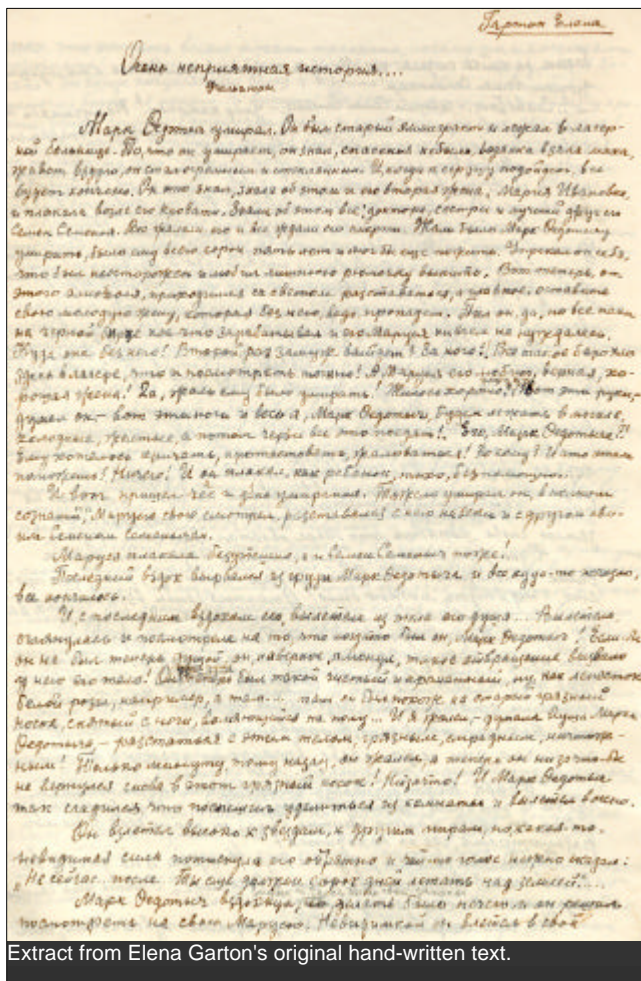 Гартон Елена
Очень неприятная история....
Фельетон
Марк Федотыч умирал. Он был старый эмигрант и лежал в лагер-
ной больнице. То, что он умирает, он знал, спасенья не было. Водянка взяла
живот вздуло, он стал огромным и стеклянным. И когда к сердцу подойдет, все
будет кончено. Он это знал, знала об этом и его вторая жена, Мария Ивановна,
и плакала возле его кровати. Знали об этом все: доктора, сестры и лучший друг его
Семен Семеныч. Все жалели его и все ждали его смерти. Жаль было Марк Федотычу
умирать, было ему всего сорок пять лет и мог бы еще пожить. Упрекал он себя,
что был неосторожен и любил лишнюю рюмочку выпить. Вот теперь, от
этого алкоголя, приходится со светом расставаться, а главное, оставить
свою молодую жену, которая без него, ведь пропадет. Пил он, да, но все таки
на черной кое что зарабатывал и его Маруся ни в чем не нуждалась.
Куда она без него! Второй раз замуж выйдет? За кого?! Все такое барахло
здесь в лагере, что и посмотреть тошно! А Маруся его верная, хо-
рошая жена! Да, жаль ему было умирать! Жилось хорошо! Вот эти руки,-
думал он,- вот эти ноги и весь я, Марк Федотыч, будем лежать в могиле,
холодные, а потом черви все это поедят! Его, Марк Федотыча?!
Ему хотелось кричать, протестовать, жаловаться! Но кому? И что этим
поможешь! Ничего! И он плакал, как ребенок, тихо, беспомощно...
И вот пришел час и день умирания. Тяжело умирал он, в полном
сознании, Марусю свою смотрел, расставался с нею навеки и с другом сво-
им Семеном Семенычем.
Маруся плакала безутешно, и Семен Семеныч тоже!
Последний вздох вырвался из груди Марк Федотыча и все куда-то исчезло,
все кончилось.
И с последним вздохом его, вылетела из тела его душа... Вылетела
оглянулась и посмотрела на то, что когда-то был он, Марк Федотыч! Если бы
он не был теперь душой, он, наверное, плюнул, такое отвращение вызвало
у него его тело! был такой чистый и ароматный, ну, как лепесток
белой розы, например, а там.... там он был похож на старый грязный
носок, снятый с ноги, валяющийся на полу... И я жалел,- думала душа Марка
Федотыча,- расстаться с этим телом, грязным, смрадным, ничтож-
ным! Только минуту, тому назад, он жалел, а теперь он ни за что бы
не вернулся снова в этот грязный носок! Ни за что! И Марк Федотыч
так что поспешил удалиться из комнаты и вылетел в окно.
Он взлетел высоко к звездам, к другим мирам, но какая-то
невидимая сила потянула его обратно и чей-то голос нежно сказал:
„Не сейчас.. после. Ты еще должен сорок дней летать над землей"....
Марк Федотыч вздохнул, но делать было нечего и он решил
посмотреть на свою Марусю. Невидимкой он влетел в свой
Extract from Elena Garton's original hand-written text.